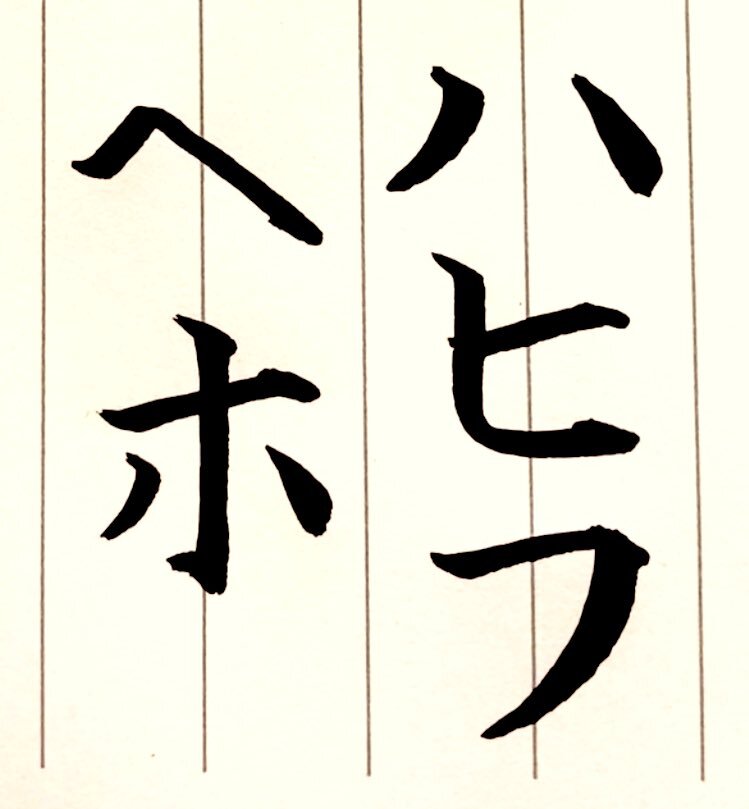 ハヒフ
ヘホ